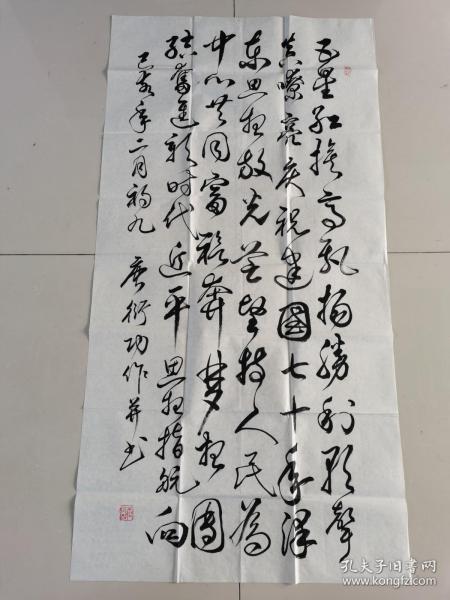 五星红旗高飘扬胜利歌声
真嘹亮庆祝建国七十年泽
东思想放光芒坚持人民为
中心共同富裕奔梦想团
结奋进新时代近平思想指航向
己亥年二月初九 唐衍功作并书
孔夫子旧书网
www.kongfz.com